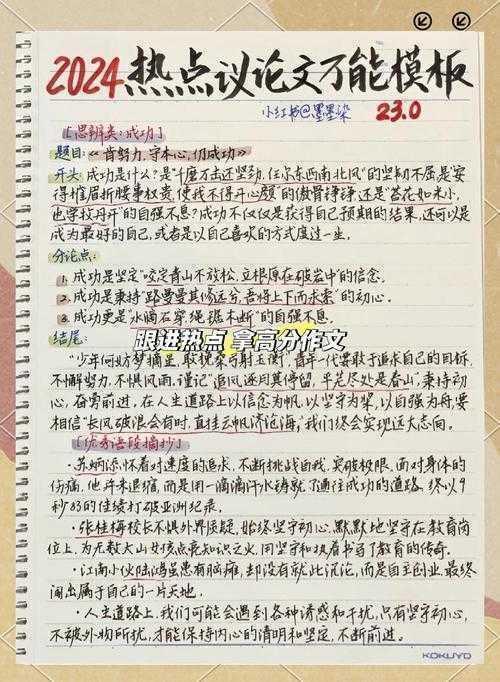 2024热点议论文万能模板
小红书@墨墨染 23.0
[思辨类:成功]
题目:《肯努力,守本心,仍成功》
开头:成功是什么?是“千磨万击还坚劲,任尔东西南北风”的坚韧不屈是“安
得摧眉折腰事权贵,使我不得开心颜”的傲骨铮铮还是“苔花如米小,
也学牡丹开”的自强不息?成功不仅仅是获得自己预期的结果,还可以是
成为最好的自己,或者是以自己喜欢的方式度过一生。
分论点:
1. 成功是坚定“咬定青山不放松,立根原在破岩中”的信念。
2. 成功是秉持“路曼曼其修远兮,吾将上下而求索”的初心。
3. 成功更是“水滴石穿,绳锯木断”的自强不息
跟进热点 拿高分作文
结尾:
“少年何妨梦摘星,敢挽桑弓射玉衡”青年一代要敢于追求自己的目标,
不懈努力,不惧风雨,谨记“追风逐月莫停留,平芜尽处是春山”,秉持初
心,奋勇前进,在人生道路上以信念为帆,以坚守为桨,以自强为舟要
相信“长风破浪会有时,直挂云帆济沧海”我们终会实现远大志向。
[优秀语段摘抄]
·苏炳添怀着对速度的追求,不断挑战自我,突破极限,面对身体的
伤痛,他并未退缩,而是用一滴滴汗水铸就了通往成功的道路,终以9
秒83的佳绩打破亚洲纪录。
·张桂梅校长不惧外界质疑,始终坚守初心,默默地坚守在教育岗
位上,为无数大山女孩点亮知识之火,用坚守和执着书写了教育的传奇。
·江南小伙陆鸿虽患有脑瘫,却没有就此沉沦,而是自主创业,最终
闯出属于自己的一片天地。
·人生道路上,我们可能会遇到各种诱惑和干扰,只有坚守初心,
不被外物所扰,才能保持内心的清明和坚定,不断前进。
KOKUYO